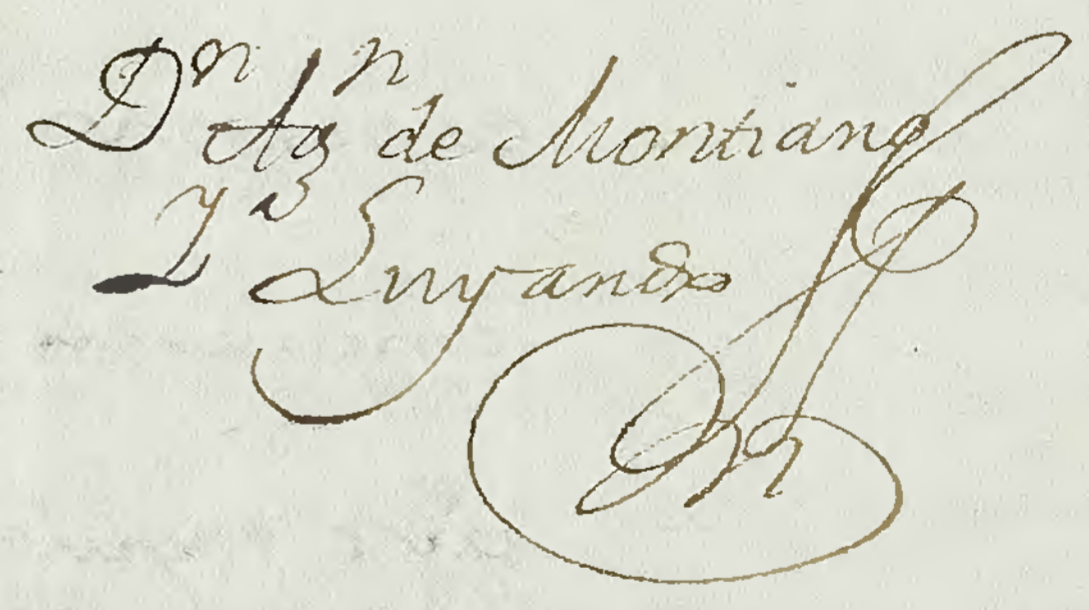 Dⁿ Agⁿ de Montiano
y Luyando